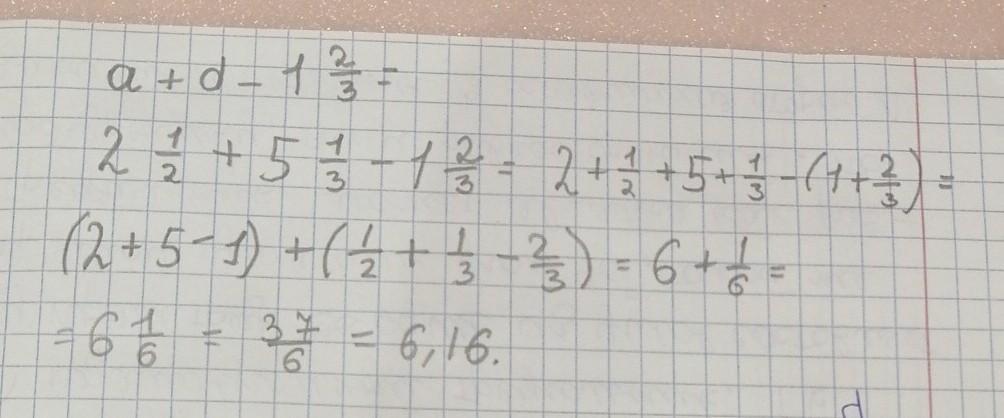 a + d - 1 2/3 =
2 1/2 + 5 1/3 - 1 2/3 = 2 + 1/2 + 5 + 1/3 - (1 + 2/3) =
(2 + 5 - 1) + (1/2 + 1/3 - 2/3) = 6 + 1/6 =
= 6 1/6 = 37/6 = 6,16.
d